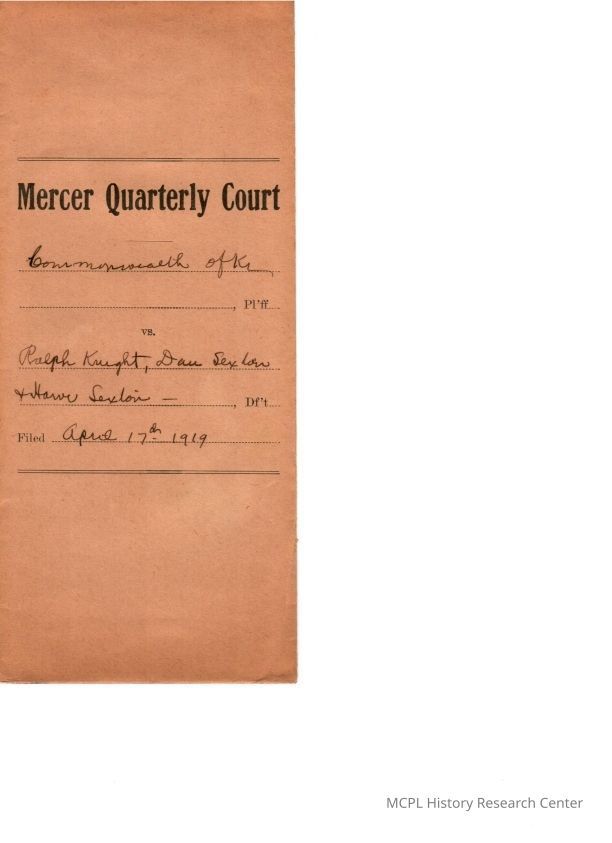 Mercer Quarterly Court
Commonwealth of Ky
, Pl'ff.
vs.
Ralph Knight, Dan Sexton
& Sexton —, Df't.
Filed April 17th 1919
MCPL History Research Center